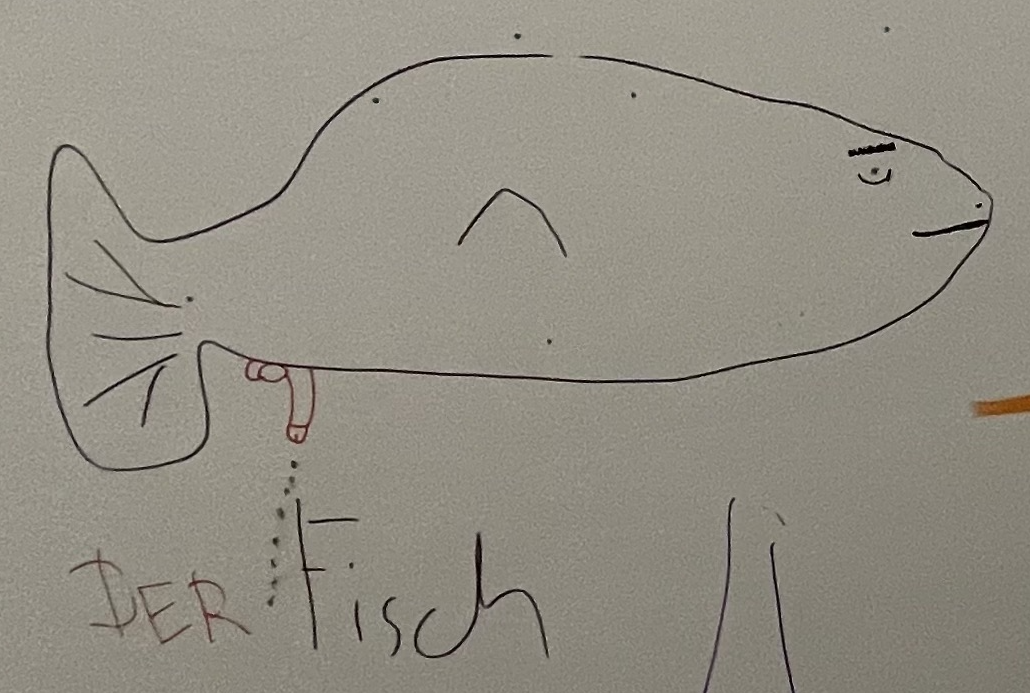 DER Fisch